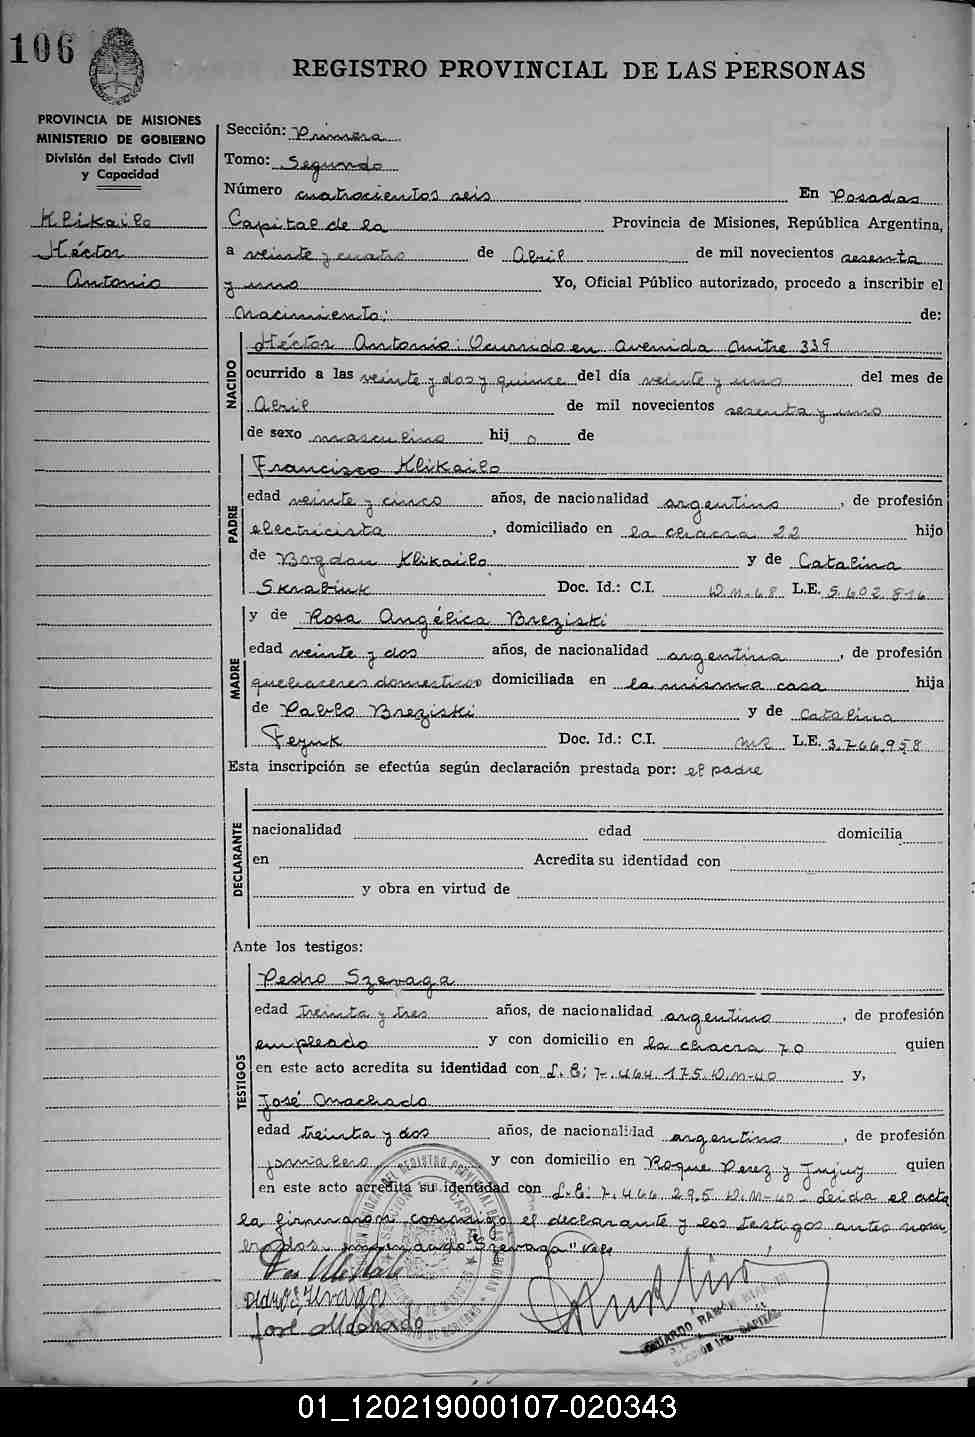 106
REGISTRO PROVINCIAL DE LAS PERSONAS
PROVINCIA DE MISIONES
MINISTERIO DE GOBIERNO
División del Estado Civil
y Capacidad
Klikailo
Héctor
Antonio
Sección: Primera
Tomo: Segundo
Número cuatrocientos seis En Posadas
Capital de la Provincia de Misiones, República Argentina,
a veinte y cuatro de Abril de mil novecientos sesenta
y uno Yo, Oficial Público autorizado, procedo a inscribir el
Nacimiento: de:
NACIDO
Héctor Antonio: Ocurrido en avenida Mitre 339
ocurrido a las veinte y dos y quince del día veinte y uno del mes de
Abril de mil novecientos sesenta y uno
de sexo masculino hij o de
PADRE
Francisco Klikailo
edad veinte y cinco años, de nacionalidad argentino, de profesión
electricista, domiciliado en la chacra 22 hijo
de Bogdan Klikailo y de Catalina
Skrabiuk Doc. Id.: C.I. D.M. 68 L.E. 5.602.816
y de Rosa Angélica Breziski
MADRE
edad veinte y dos años, de nacionalidad argentina, de profesión
quehaceres domesticos domiciliada en la misma casa hija
de Pablo Breziski y de Catalina
Doc. Id.: C.I. L.E. 3.766.958
Esta inscripción se efectúa según declaración prestada por: el padre
DECLARANTE
nacionalidad edad domicilia
en Acredita su identidad con
y obra en virtud de
Ante los testigos:
TESTIGOS
Pedro Szevaga
edad treinta y tres años, de nacionalidad argentino, de profesión
empleado y con domicilio en la chacra 70 quien
en este acto acredita su identidad con L.E: 7.464.175 D.M-40 y,
José Machado
edad treinta y dos años, de nacionalidad argentino, de profesión
jornalero y con domicilio en Roque Perez y Jujuy quien
en este acto acredita su identidad con L.E: 7.466.295 D.M-40- Leida el acta
la firmaron conmigo el declarante y los testigos antes nom
brados. "Szevaga" Vale
José Machado
EDUARDO RAMÓN
01_120219000107-020343